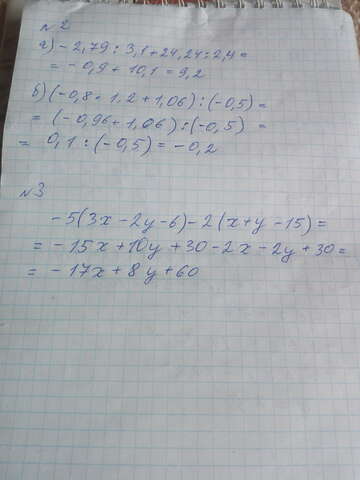 №2
а) -2,79 : 3,1 + 24,24 : 2,4 =
= -0,9 + 10,1 = 9,2
б) (-0,8 · 1,2 + 1,06) : (-0,5) =
= (-0,96 + 1,06) : (-0,5) =
= 0,1 : (-0,5) = -0,2
№3
-5(3x - 2y - 6) - 2(x + y - 15) =
= -15x + 10y + 30 - 2x - 2y + 30 =
= -17x + 8y + 60